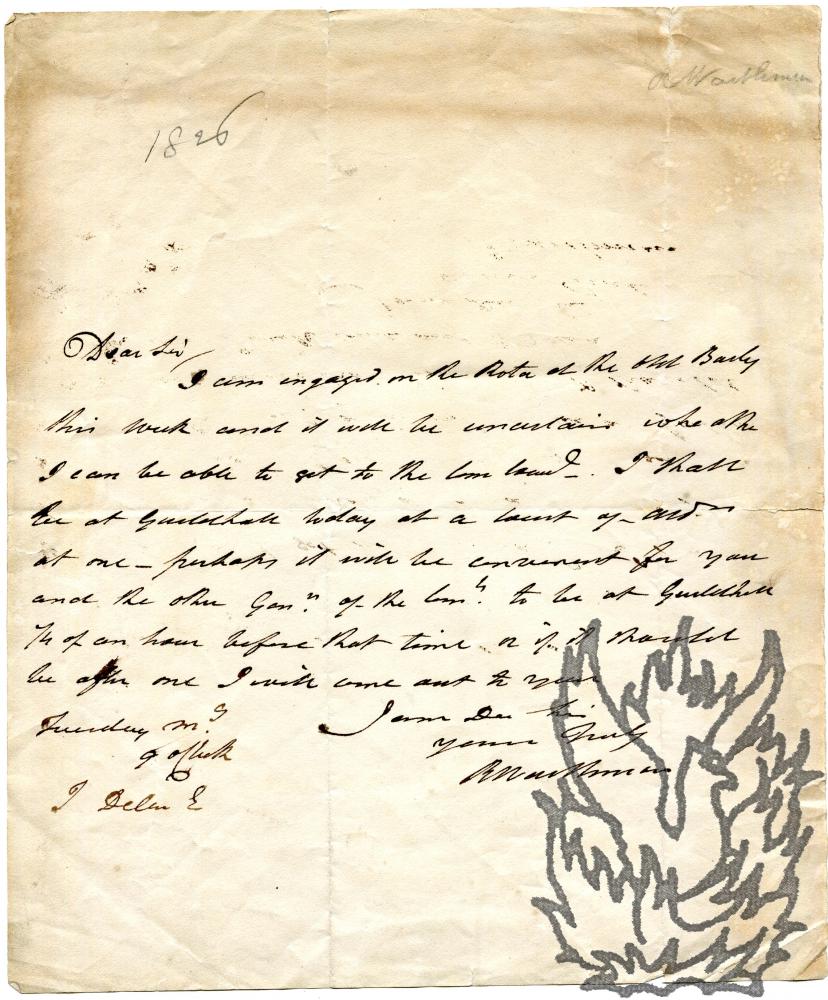 R Waithman
1826
Dear Sir/
I am engaged on the Rota at the Old Baily
this week and it will be uncertain whe athe
I can be able to get to the Com Counl - I shall
be at Guildhall today at a Court of - Aldn
at one - perhaps it will be convenient for you
and the other Genn. of the Comn. to be at Guildhall
1/4 of an hour before that time or if it should
be after one I will come out to you
I am Der Sir
Tuesday mg
yours truly
9 oClock
R Waithman
J